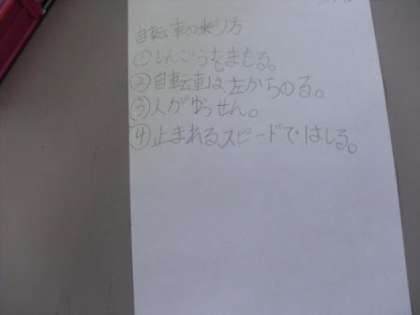 自転車の乗り方
①しんごうをまもる。
②自転車は、左からのる。
③人がゆっせん。
④止まれるスピードではしる。